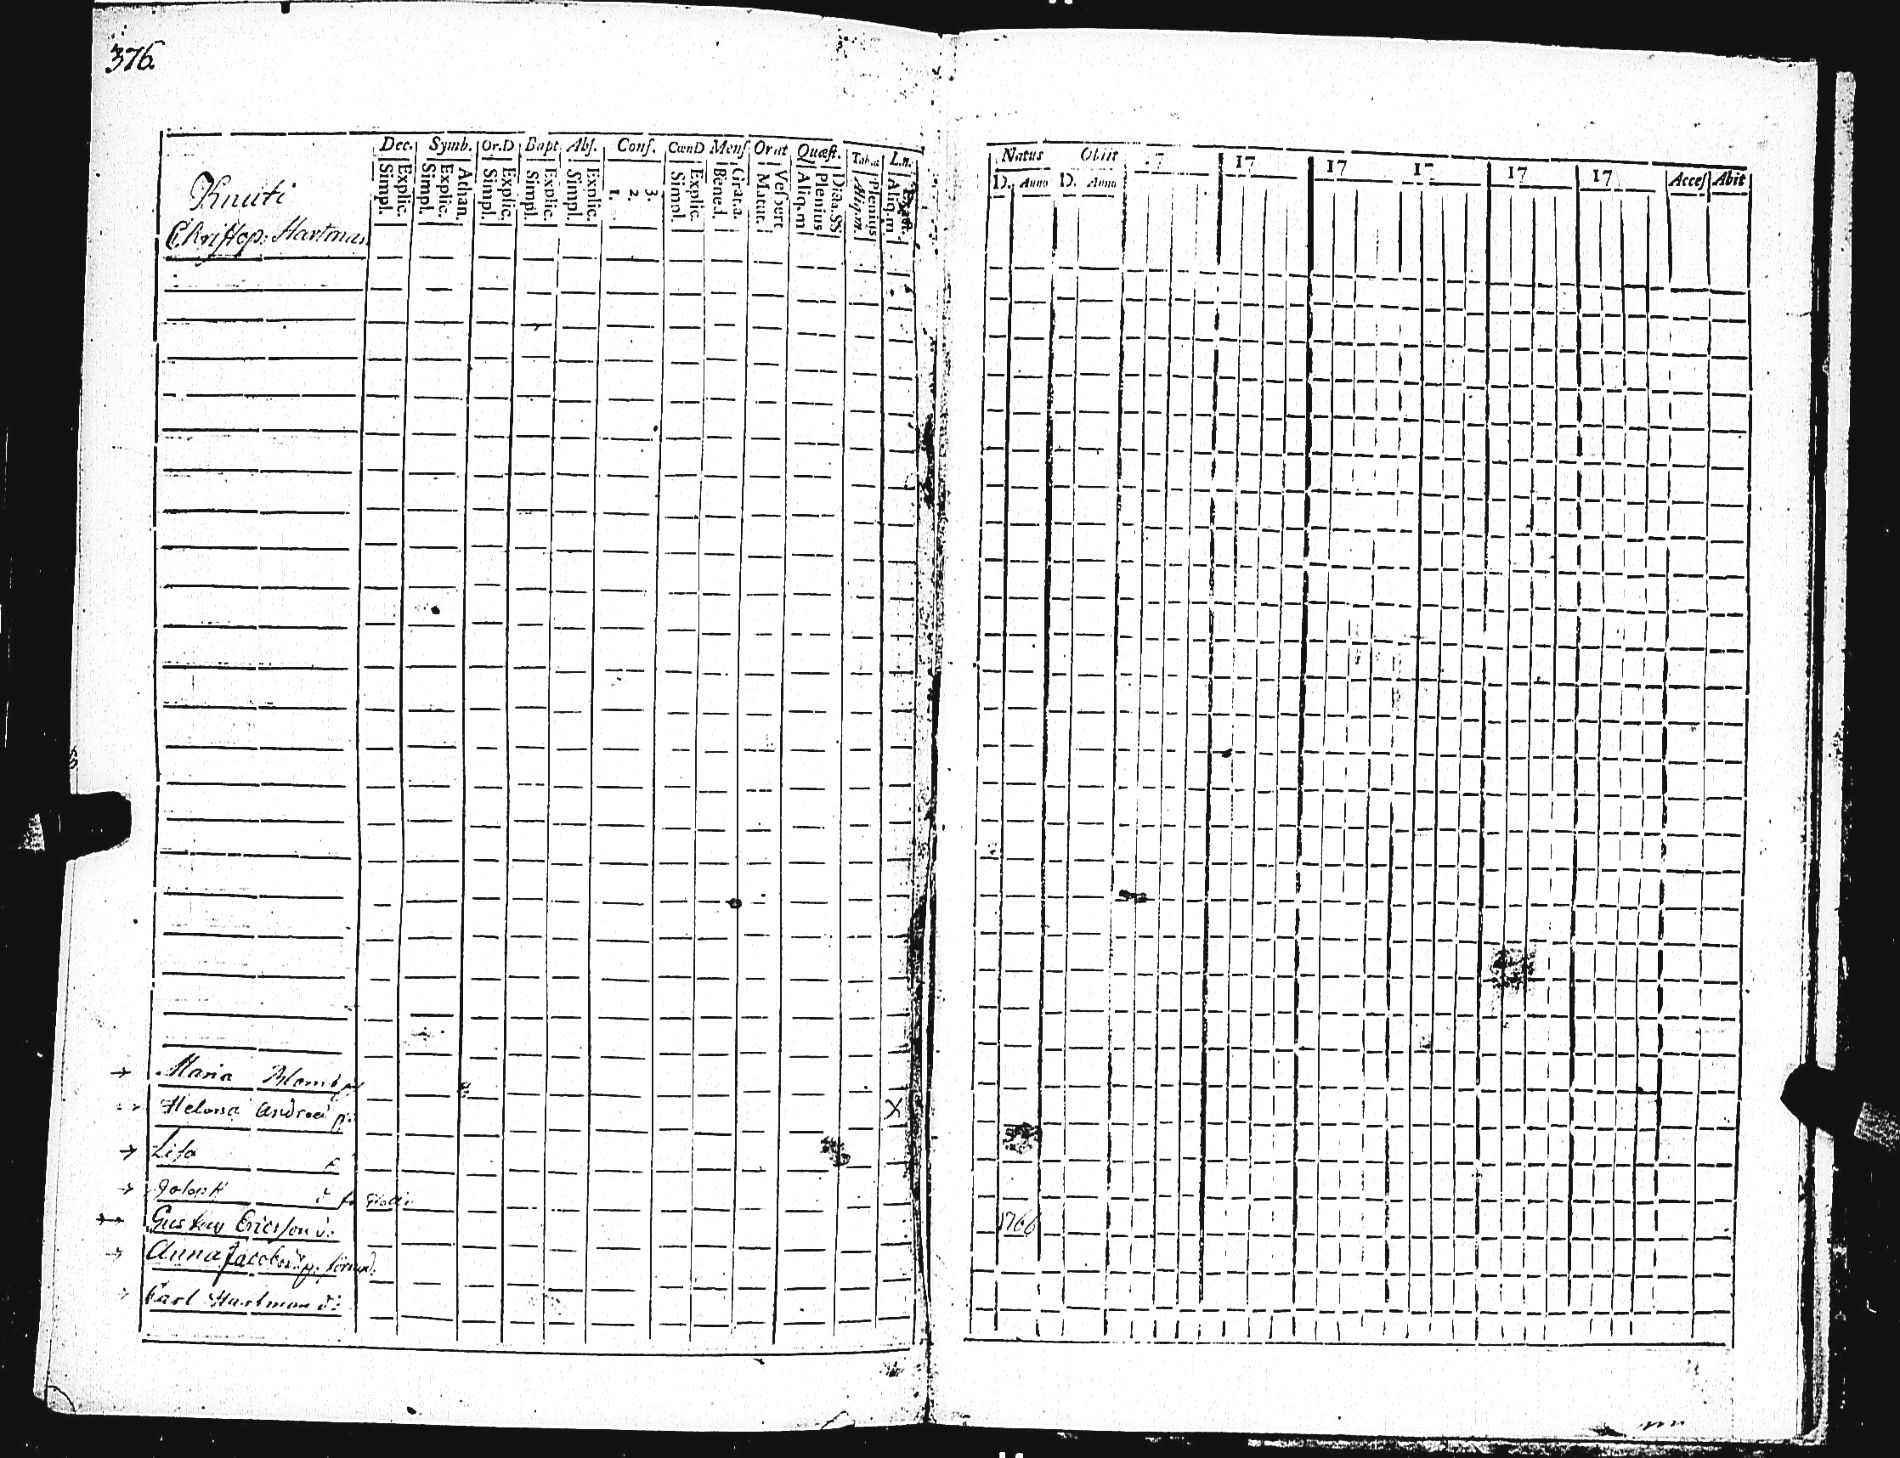 376.
Dec. Symb. Or.D Bapt Abs. Conf. CœnD Mens Orat Quæst. Tabul L.n.
Simpl. Explic. Simpl. Explic. Athan. Simpl. Explic. Simpl. Explic. Simpl. Explic. 1. 2. 3. Simpl. Explic. Bened. Grat.a. Matut. Vespert Aliq.m Plenius Dicta.SS Aliq.m. Plenius Aliq.m
Knuti
Christop: Hartman
Natus Obiit 17 17 17 17 17 17 Acces Abit
D. Anno D. Anno
Maria
Helena Andreæ p:
Lisa
Gustav Ericsson d:
1766
Anna Jacobs
Carl Hartman d: